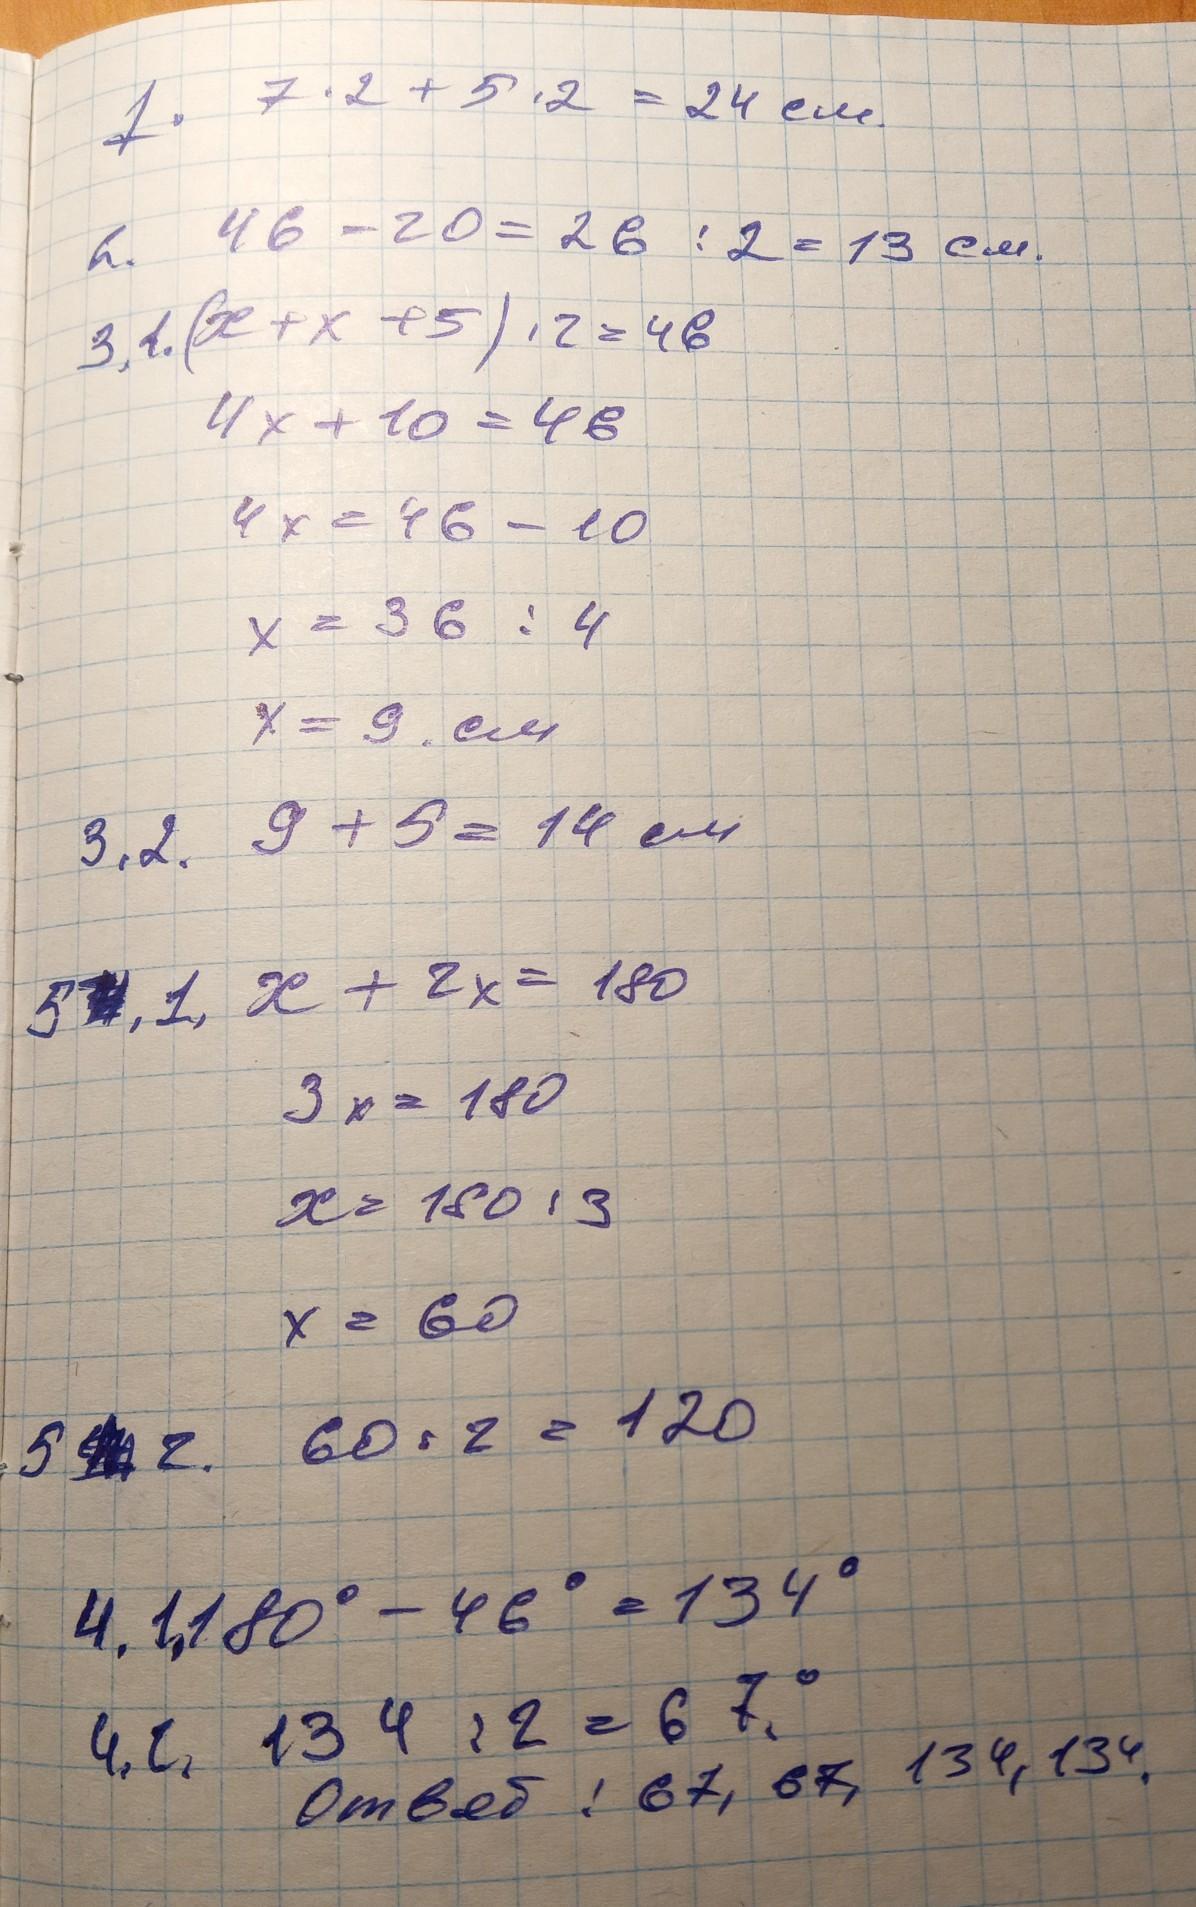 1. 7 · 2 + 5 · 2 = 24 см.
2. 46 - 20 = 26 : 2 = 13 см.
3.1. (x + x + 5) · 2 = 46
4x + 10 = 46
4x = 46 - 10
x = 36 : 4
x = 9. см
3.2. 9 + 5 = 14 см
5.1. x + 2x = 180
3x = 180
x = 180 : 3
x = 60
5 2. 60 · 2 = 120
4.1. 180° - 46° = 134°
4.2. 134 : 2 = 67.°
Ответ : 67, 67, 134, 134.